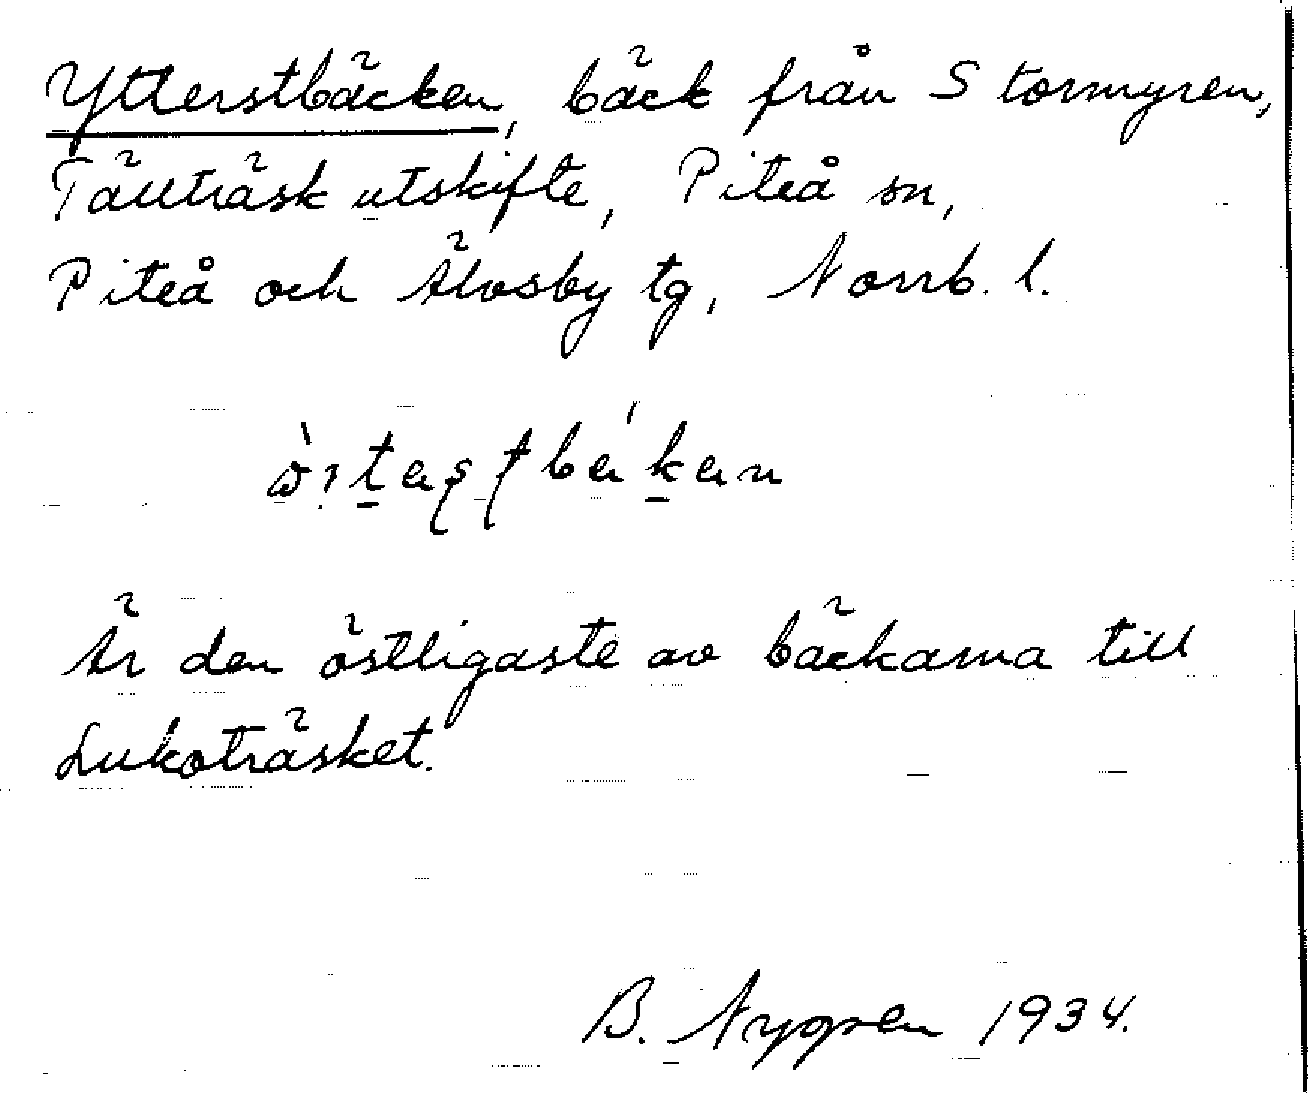 Ytterstbäcken, bäck från Stormyren,
Tällträsk utskifte, Piteå sn,
Piteå och Älvsby tg, Norrb. l.
Är den östligaste av bäckarna till
Lukoträsket.
B. Nygren 1934.